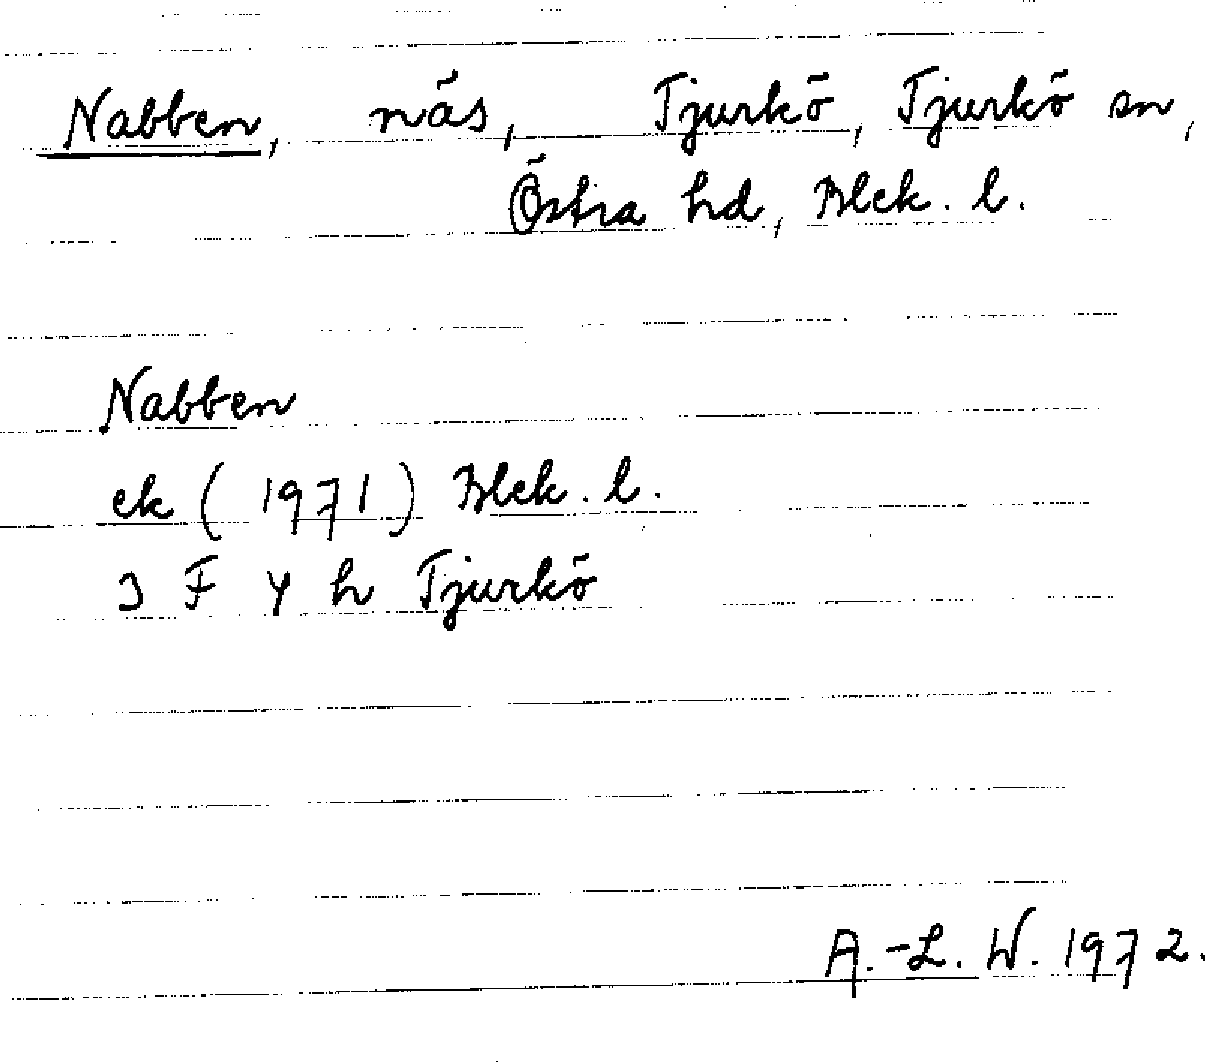 Nabben, näs, Tjurkö, Tjurkö sn,
Östra hd, Blek. l.
Nabben
ek (1971) Blek. l.
3 F Y h Tjurkö
A.-L. W. 1972.